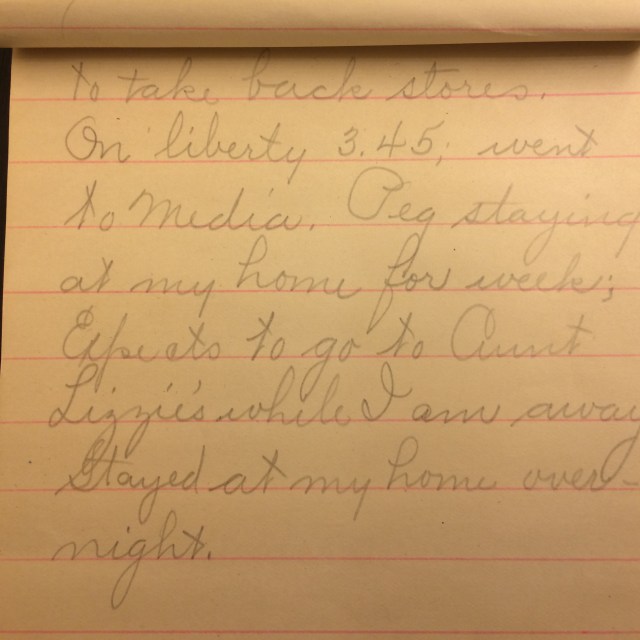 to take back stores.
On liberty 3.45; went
to Media. Peg staying
at my home for week;
Expects to go to Aunt
Lizzie's while I am away
Stayed at my home over-
night.